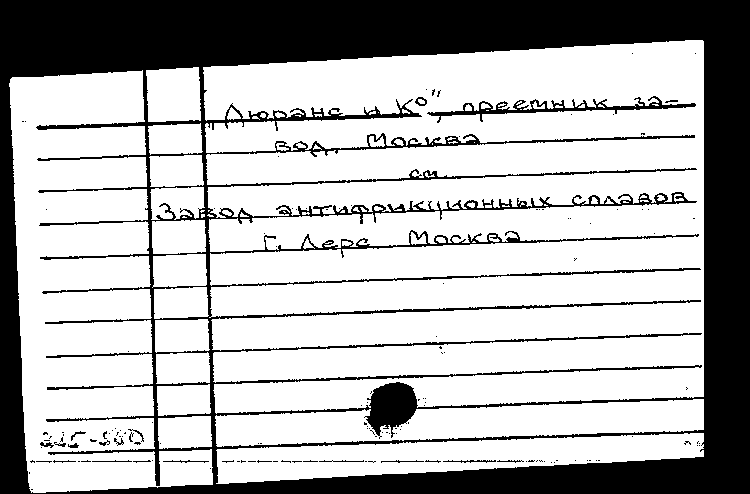 „Люранс и К°", преемник, за-
вод. Москва
см
Завод антифрикционных сплавов
Г. Лерс Москва